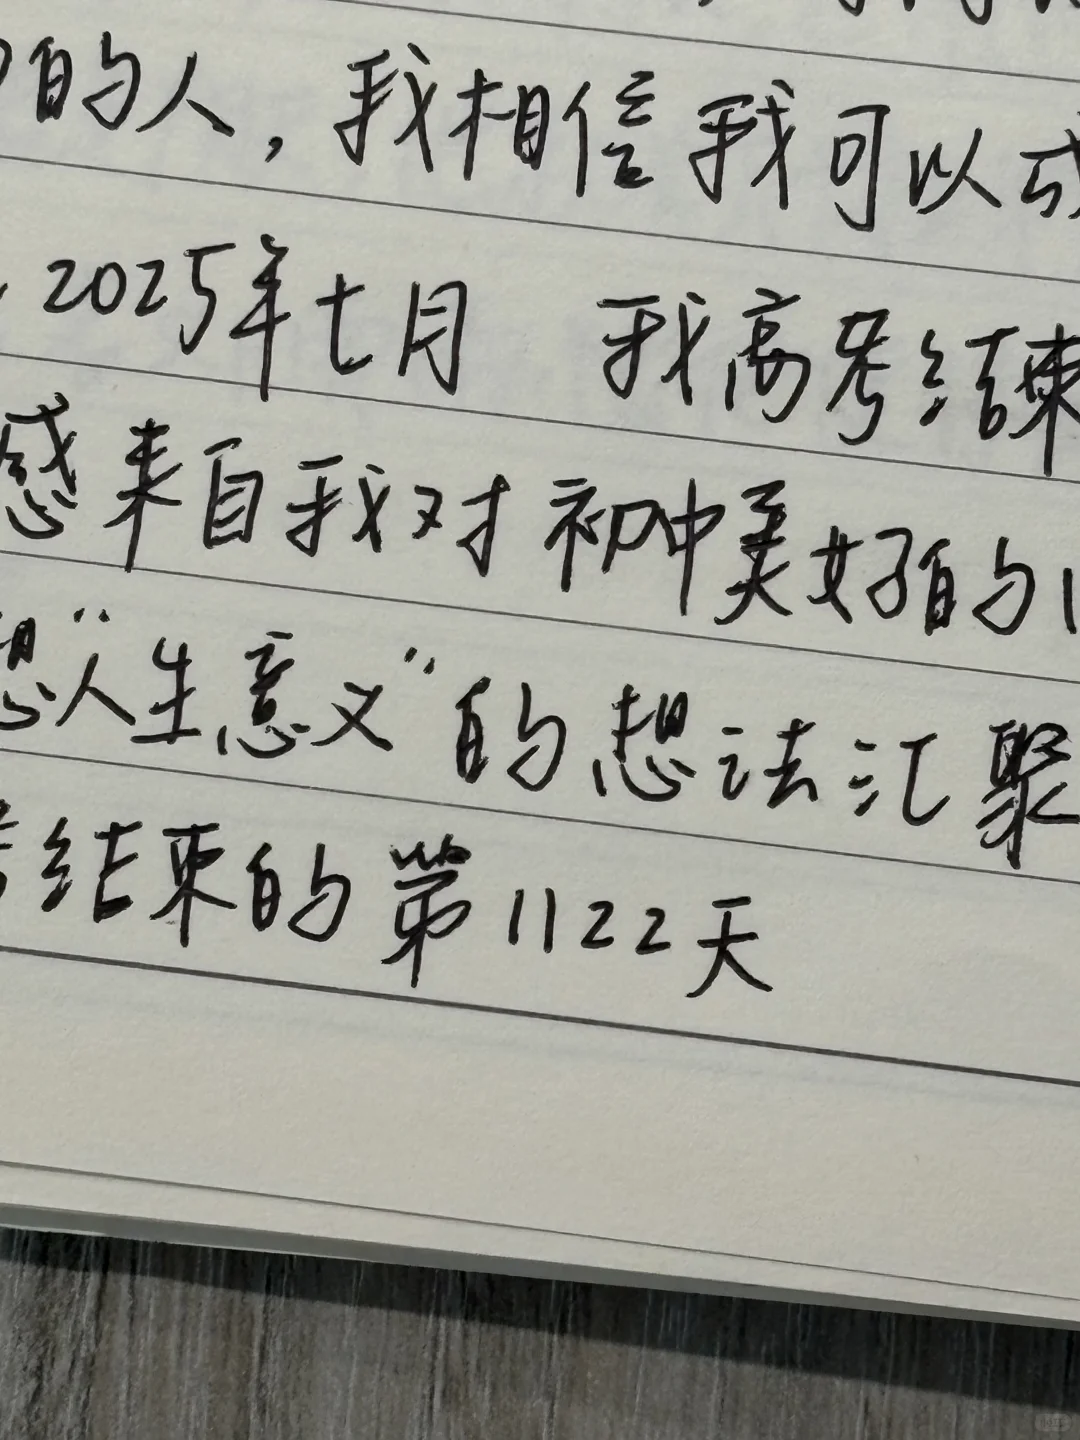 的人，我相信我可以成
2025年七月 我高考结束
感来自我对初中美好的
想“人生意义”的想法汇聚
结束的第1122天